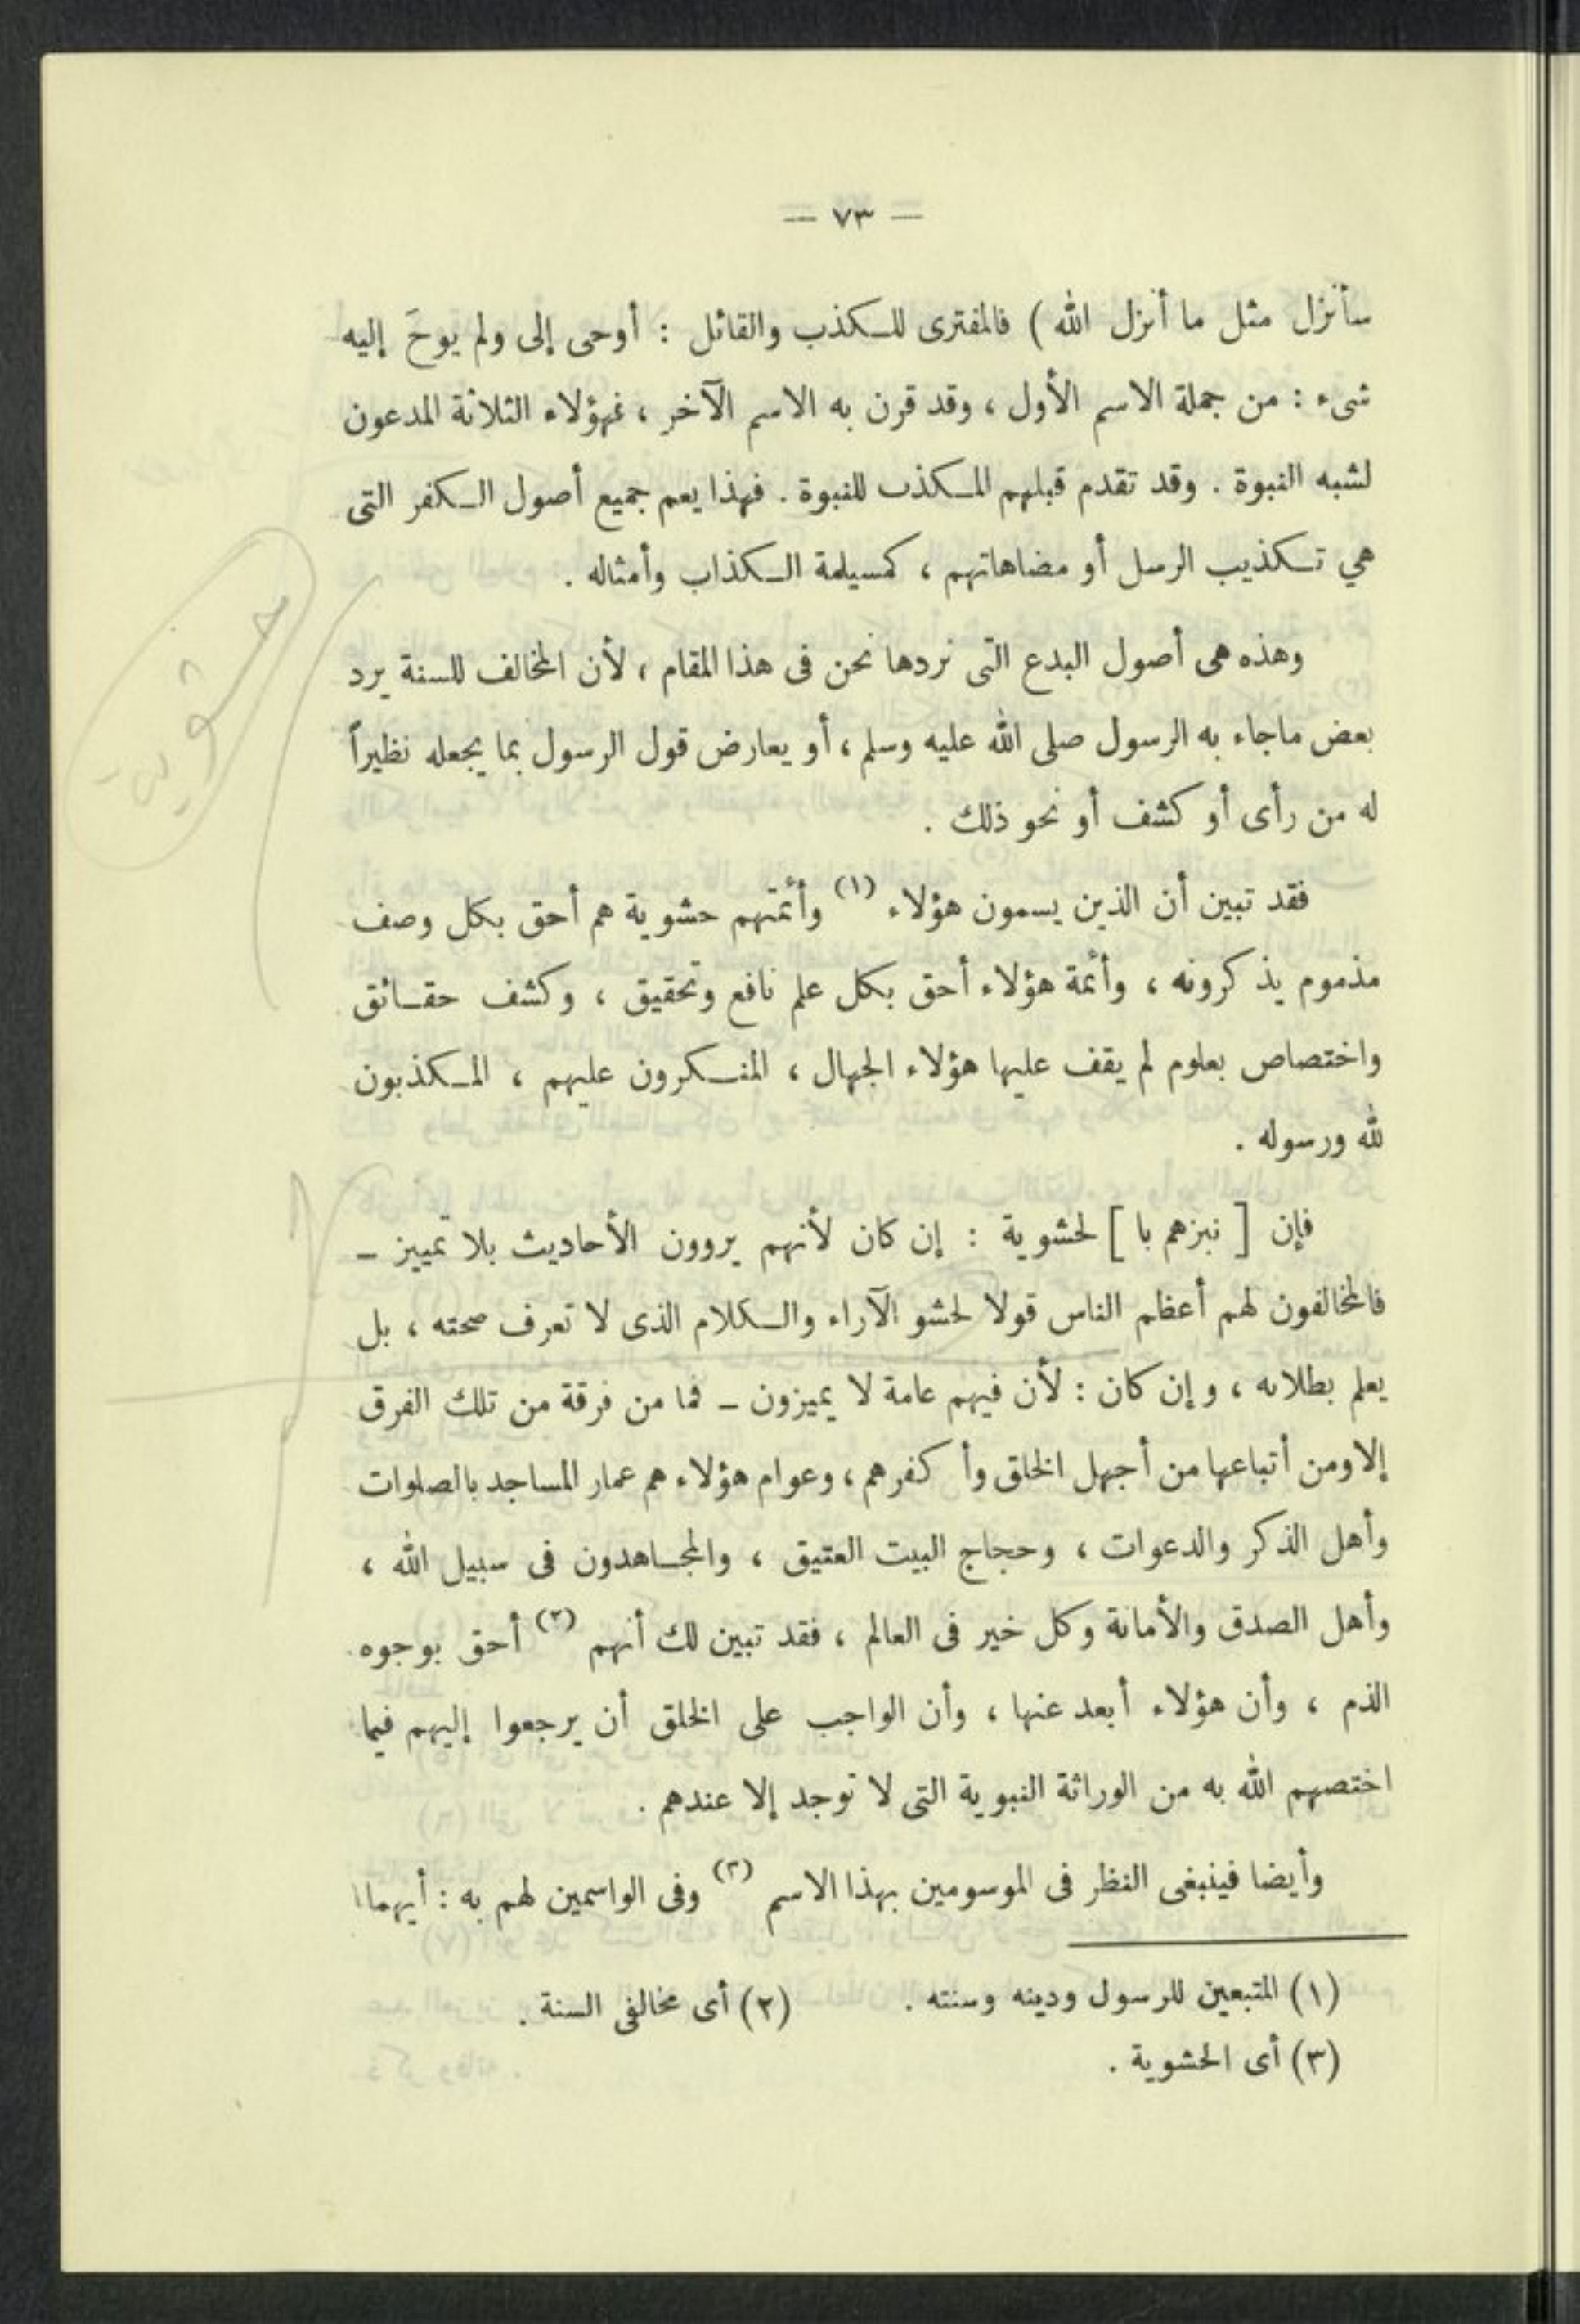 — ٧٣ —
سأنزل مثل ما أنزل الله ) فالمفترى للكذب والقائل : أوحى إلى ولم يوحَ إليه
شىء : من جملة الاسم الأول ، وقد قرن به الاسم الآخر ، فهؤلاء الثلاثة المدعون
لشبه النبوة . وقد تقدم قبلهم المكذب للنبوة . فهذا يعم جميع أصول الكفر التى
هي تكذيب الرسل أو مضاهاتهم ، كمسيلمة الكذاب وأمثاله .
وهذه هى أصول البدع التى نردها نحن فى هذا المقام ، لأن المخالف للسنة يرد
بعض ماجاء به الرسول صلى الله عليه وسلم ، أو يعارض قول الرسول بما يجعله نظيراً
له من رأى أو كشف أو نحو ذلك .
فقد تبين أن الذين يسمون هؤلاء (١) وأئمتهم حشوية هم أحق بكل وصف
مذموم يذكرونه ، وأئمة هؤلاء أحق بكل علم نافع وتحقيق ، وكشف حقائق
واختصاص بعلوم لم يقف عليها هؤلاء الجهال ، المنكرون عليهم ، المكذبون
لله ورسوله .
فإن [ نبزهم با ] لحشوية : إن كان لأنهم يروون الأحاديث بلا تمييز –
فالمخالفون لهم أعظم الناس قولا لحشو الآراء والكلام الذى لا تعرف صحته ، بل
يعلم بطلانه ، وإن كان : لأن فيهم عامة لا يميزون – فما من فرقة من تلك الفرق
إلا ومن أتباعها من أجهل الخلق وأكفرهم ، وعوام هؤلاء هم عمار المساجد بالصلوات
وأهل الذكر والدعوات ، وحجاج البيت العتيق ، والمجاهدون فى سبيل الله ،
وأهل الصدق والأمانة وكل خير فى العالم ، فقد تبين لك أنهم (٢) أحق بوجوه
الذم ، وأن هؤلاء أبعد عنها ، وأن الواجب على الخلق أن يرجعوا إليهم فيما
اختصهم الله به من الوراثة النبوية التى لا توجد إلا عندهم .
وأيضا فينبغى النظر فى الموسومين بهذا الاسم (٣) وفى الواسمين لهم به : أيهما
(١) المتبعين للرسول ودينه وسنته . (٢) أى مخالفى السنة .
(٣) أى الحشوية .
حشوية